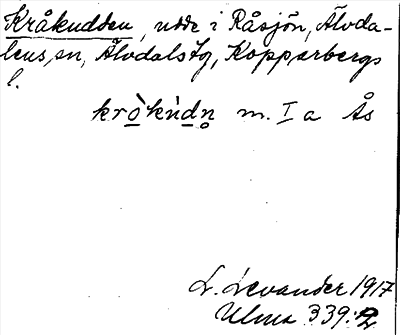 Kråkudden, udde i Råsjön, Älvda-
lens sn, Älvdals tg, Kopparbergs
l.
kròkùdn̥ m. I a Ås
L. Levander 1917
Ulma 339:2